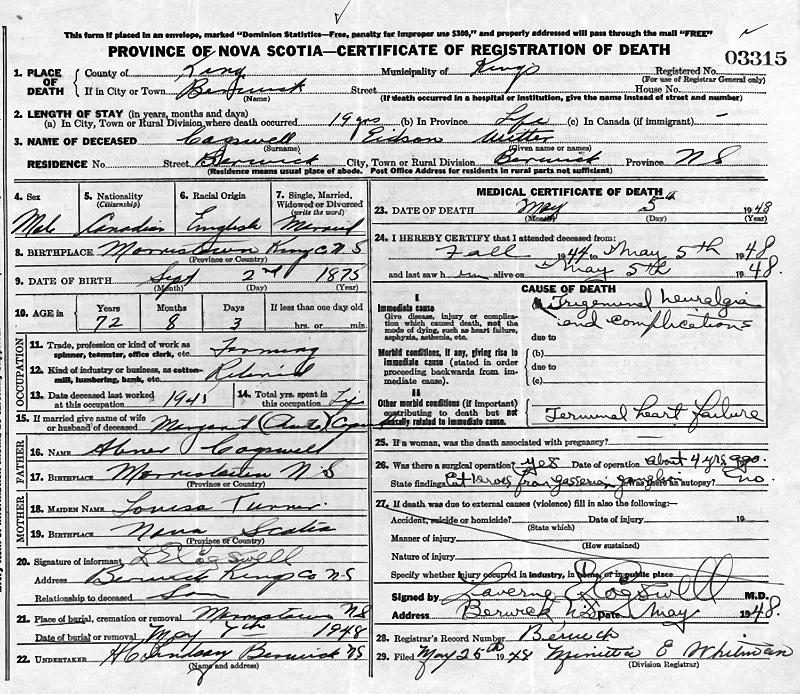 This form if placed in an envelope, marked "Dominion Statistics—Free, penalty for improper use $300," and properly addressed will pass through the mail "FREE"
PROVINCE OF NOVA SCOTIA—CERTIFICATE OF REGISTRATION OF DEATH
03315
1. PLACE OF DEATH County of King Municipality of Kings Registered No.
(For use of Registrar General only)
If in City or Town Berwick Street House No.
(Name) (If death occurred in a hospital or institution, give the name instead of street and number)
2. LENGTH OF STAY (in years, months and days)
(a) In City, Town or Rural Division, where death occurred 19 yrs (b) In Province Life (c) In Canada (if immigrant) —
3. NAME OF DECEASED Cogswell Eidson Witter
(Surname) (Given name or names)
RESIDENCE No. Street Berwick City, Town or Rural Division Berwick Province NS
(Residence means usual place of abode. Post Office Address for residents in rural parts not sufficient)
4. Sex 5. Nationality (Citizenship) 6. Racial Origin 7. Single, Married, Widowed or Divorced (write the word)
Male Canadian English Married
8. BIRTHPLACE Morristown King Co NS
(Province or Country)
9. DATE OF BIRTH Sept 2nd 1875
(Month) (Day) (Year)
10. AGE in Years Months Days If less than one day old
72 8 3 hrs. or min.
OCCUPATION
11. Trade, profession or kind of work as spinner, teamster, office clerk, etc. Farming
12. Kind of industry or business, as cotton-mill, lumbering, bank, etc. Retired
13. Date deceased last worked at this occupation 1941 14. Total yrs. spent in this occupation Life
15. If married give name of wife or husband of deceased Margaret
FATHER
16. Name Abner Cogswell
17. Birthplace Morristown N S
(Province or Country)
MOTHER
18. Maiden Name Louisa Turner
19. Birthplace Nova Scotia
(Province or Country)
20. Signature of informant L Cogswell
Address Berwick Kings Co NS
Relationship to deceased Son
21. Place of burial, cremation or removal Morristown NS
Date of burial or removal May 7th 1948
22. UNDERTAKER H C Lindsay Berwick NS
(Name and address)
MEDICAL CERTIFICATE OF DEATH
23. DATE OF DEATH May 5th 1948
(Month) (Day) (Year)
24. I HEREBY CERTIFY that I attended deceased from:
Fall 1944 to May 5th 1948
and last saw him alive on May 5th 1948.
CAUSE OF DEATH
I
Immediate cause
Give disease, injury or complication which caused death, not the mode of dying, such as heart failure, asphyxia, asthenia, etc.
a Trigeminal neuralgia and complications
due to
Morbid conditions, if any, giving rise to immediate cause (stated in order proceeding backwards from immediate cause).
(b)
due to
(c)
II
Other morbid conditions (if important) contributing to death but not causally related to immediate cause.
Terminal heart failure
25. If a woman, was the death associated with pregnancy? —
26. Was there a surgical operation yes Date of operation about 4 yrs ago.
State findings Cut nerves from gasserian ganglion Was there an autopsy? no.
27. If death was due to external causes (violence) fill in also the following:—
Accident, suicide or homicide? Date of injury 19
(State which)
Manner of injury
(How sustained)
Nature of injury
Specify whether injury occurred in industry, in home, or in public place
Signed by Laverne Cogswell M.D.
Address Berwick NS Date May 1948.
28. Registrar's Record Number Berwick
29. Filed May 25th 1948 Minetta E Whitman
(Division Registrar)